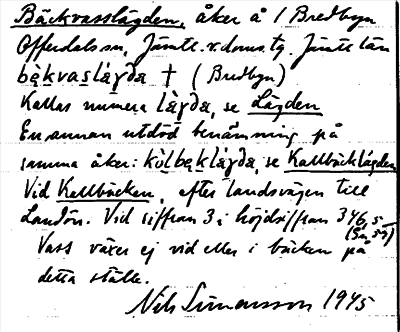 Bäckvasslägden, åker å 1 Bredbyn
Offerdals sn, Jämtl. v. doms. tg. Jämtl. län
bękvaslägda † (Bredbyn)
Kallas numera lägda, se Lägden
En annan utdöd benämning på
samma åker: kölbęklägda, se Kallbäcklägden
Vid Kallbäcken, efter landsvägen till
Landön. Vid siffran 3 i höjdsiffran 346,5
Vass växer ej vid eller i bäcken på
detta ställe.
Nils Simonsson 1945